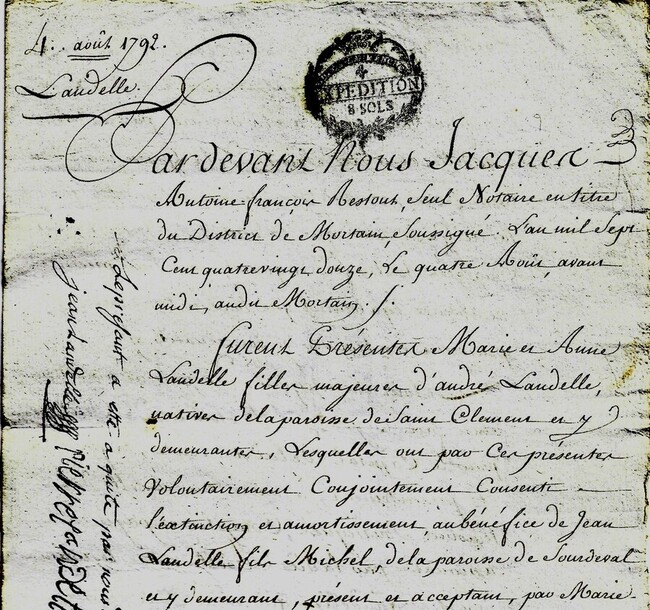 4. août 1792.
Landelle.
4
EXPEDITION
8 SOLS
Pardevant Nous Jacques
Antoine françois Restout, Seul Notaire en titre
du District de Mortain, Soussigné. L'an mil Sept
Cent quatrevingt douze, Le quatre Août, avant
midi, audit Mortain.
furent Présentes Marie et Anne
Landelle filles majeures d'andré Landelle,
natives de la paroisse de Saint Clement et y
demeurantes, Lesquelles ont par Ces présentes
Volontairement Conjointement Consenti
l'extinction et amortissement, au bénéfice de Jean
Landelle fils Michel, de la paroisse de Sourdeval
et y demeurant, présent et acceptant, par Marie
Le présent a été a quité par nous
jean Landelle